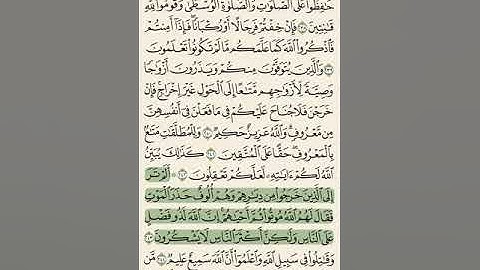 حَٰفِظُوا۟ عَلَى ٱلصَّلَوَٰتِ وَٱلصَّلَوٰةِ ٱلْوُسْطَىٰ وَقُومُوا۟ لِلَّهِ
قَٰنِتِينَ ٢٣٨ فَإِنْ خِفْتُمْ فَرِجَالًا أَوْ رُكْبَانًا فَإِذَآ أَمِنتُمْ
فَٱذْكُرُوا۟ ٱللَّهَ كَمَا عَلَّمَكُم مَّا لَمْ تَكُونُوا۟ تَعْلَمُونَ
٢٣٩ وَٱلَّذِينَ يُتَوَفَّوْنَ مِنكُمْ وَيَذَرُونَ أَزْوَٰجًا
وَصِيَّةً لِّأَزْوَٰجِهِم مَّتَٰعًا إِلَى ٱلْحَوْلِ غَيْرَ إِخْرَاجٍ فَإِنْ
خَرَجْنَ فَلَا جُنَاحَ عَلَيْكُمْ فِى مَا فَعَلْنَ فِىٓ أَنفُسِهِنَّ
مِن مَّعْرُوفٍ وَٱللَّهُ عَزِيزٌ حَكِيمٌ ٢٤٠ وَلِلْمُطَلَّقَٰتِ مَتَٰعٌۢ
بِٱلْمَعْرُوفِ حَقًّا عَلَى ٱلْمُتَّقِينَ ٢٤١ كَذَٰلِكَ يُبَيِّنُ
ٱللَّهُ لَكُمْ ءَايَٰتِهِۦ لَعَلَّكُمْ تَعْقِلُونَ ٢٤٢ ۞ أَلَمْ تَرَ
إِلَى ٱلَّذِينَ خَرَجُوا۟ مِن دِيَٰرِهِمْ وَهُمْ أُلُوفٌ حَذَرَ ٱلْمَوْتِ
فَقَالَ لَهُمُ ٱللَّهُ مُوتُوا۟ ثُمَّ أَحْيَٰهُمْ إِنَّ ٱللَّهَ لَذُو فَضْلٍ
عَلَى ٱلنَّاسِ وَلَٰكِنَّ أَكْثَرَ ٱلنَّاسِ لَا يَشْكُرُونَ ٢٤٣
وَقَٰتِلُوا۟ فِى سَبِيلِ ٱللَّهِ وَٱعْلَمُوٓا۟ أَنَّ ٱللَّهَ سَمِيعٌ عَلِيمٌ ٢٤٤ مَّن